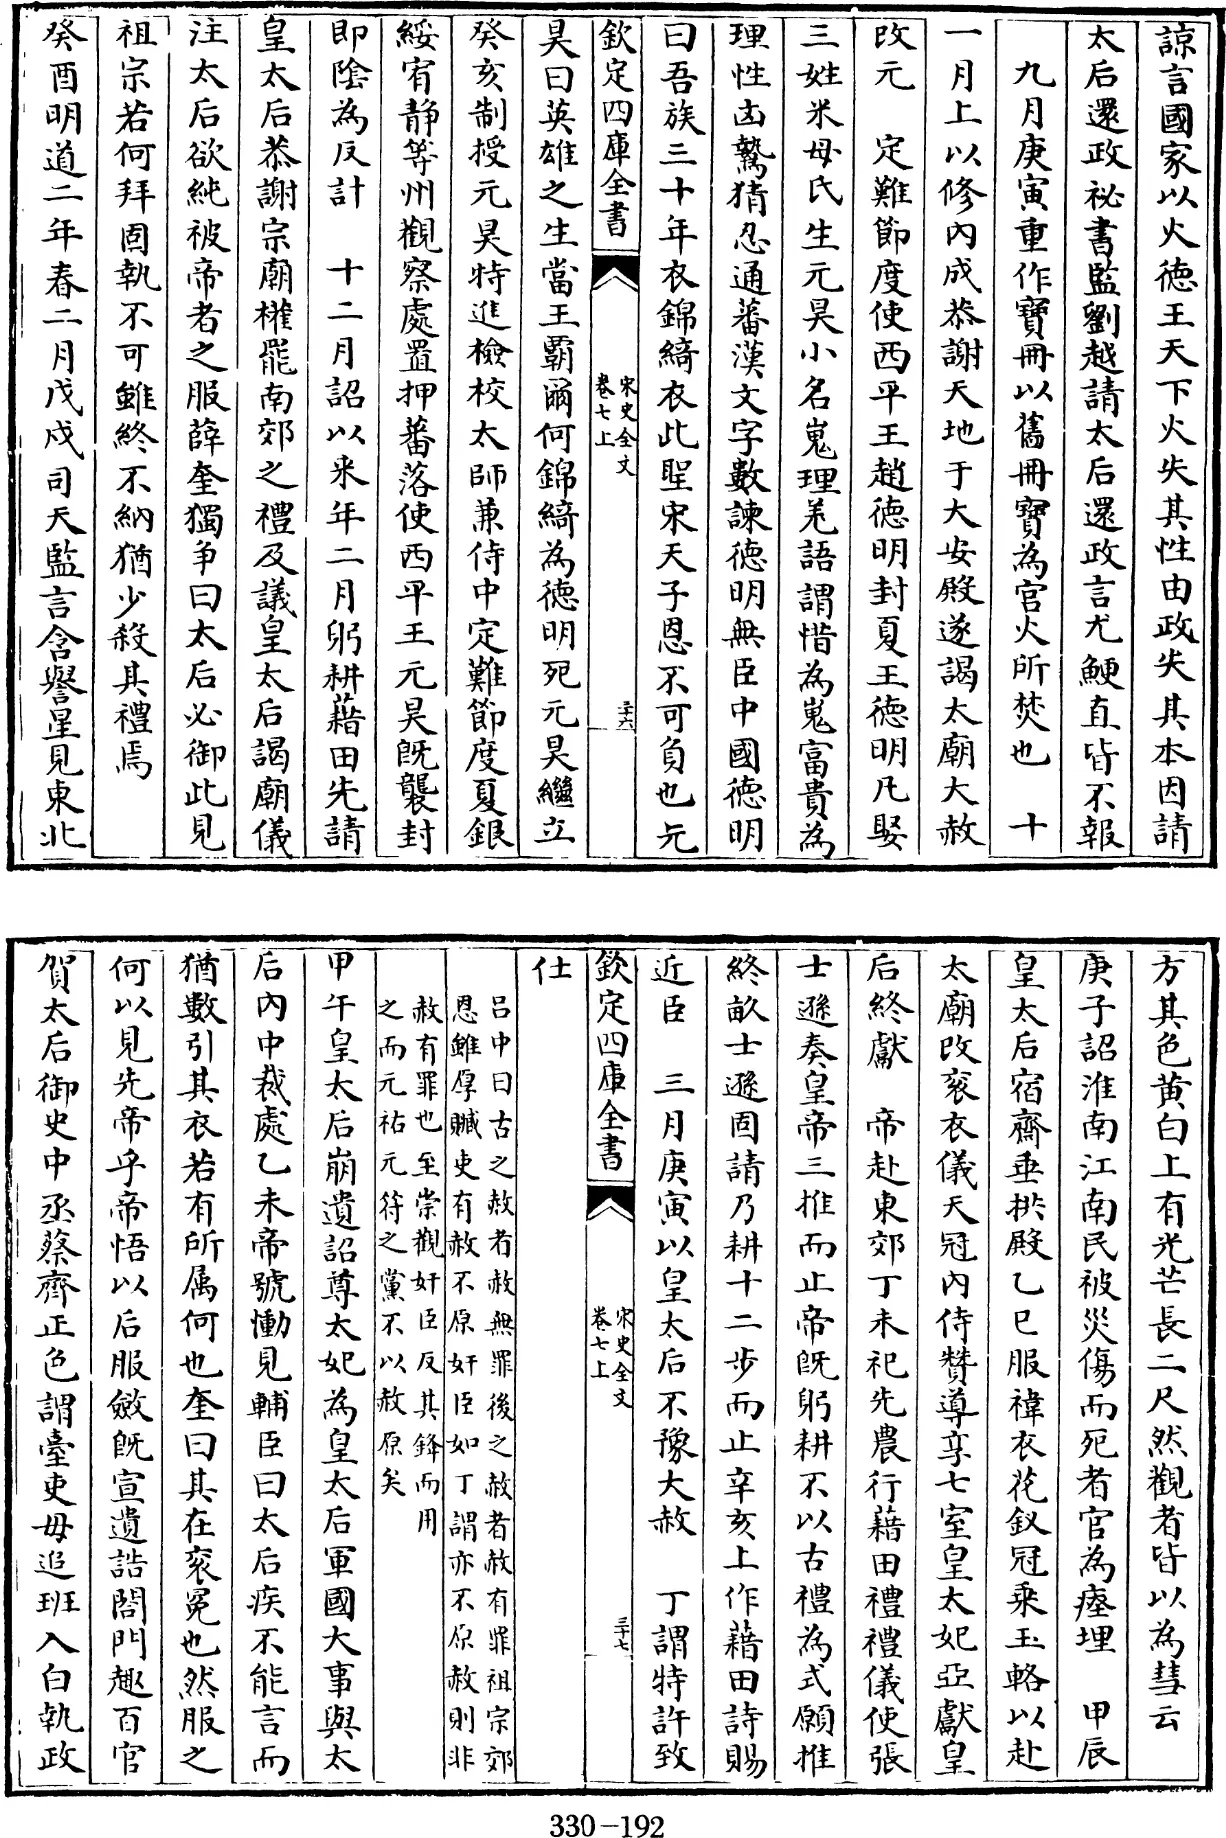 諒言國家以火德王天下火失其性由政失其本因請
太后還政祕書監劉越請太后還政言尤鯁直皆不報
九月庚寅重作寶冊以舊冊寶為宫火所焚也　十
一月上以修内成恭謝天地于大安殿遂謁太廟大赦
改元　定難節度使西平王趙德明封夏王德明凡娶
三姓米母氏生元昊小名嵬理羌語謂惜為嵬富貴為
理性凶鷙猜忍通蕃漢文字數諫德明無臣中國德明
曰吾族三十年衣錦綺衣此聖宋天子恩不可負也元
欽定四庫全書
宋史全文
卷七上
三十六
昊曰英雄之生當王霸爾何錦綺為德明死元昊繼立
癸亥制授元昊特進檢校太師兼侍中定難節度夏銀
綏宥静等州觀察處置押蕃落使西平王元昊既襲封
即陰為反計　十二月詔以來年二月躬耕藉田先請
皇太后恭謝宗廟權罷南郊之禮及議皇太后謁廟儀
注太后欲純被帝者之服薛奎獨争曰太后必御此見
祖宗若何拜固執不可雖終不納猶少殺其禮焉
癸酉明道二年春二月戊戌司天監言含譽星見東北
方其色黄白上有光芒長二尺然觀者皆以為彗云
庚子詔淮南江南民被災傷而死者官為瘞埋　甲辰
皇太后宿齋垂拱殿乙巳服褘衣花釵冠乘玉輅以赴
太廟改衮衣儀天冠内侍贊導享七室皇太妃亞獻皇
后終獻　帝赴東郊丁未祀先農行藉田禮禮儀使張
士遜奏皇帝三推而止帝既躬耕不以古禮為式願推
終畝士遜固請乃耕十二步而止辛亥上作藉田詩賜
近臣　三月庚寅以皇太后不豫大赦　丁謂特許致
欽定四庫全書
宋史全文
卷七上
三十七
仕
吕中曰古之赦者赦無罪後之赦者赦有罪祖宗郊
恩雖厚贓吏有赦不原奸臣如丁謂亦不原赦則非
赦有罪也至崇觀奸臣反其鋒而用
之而元祐元符之黨不以赦原矣
甲午皇太后崩遺詔尊太妃為皇太后軍國大事與太
后内中裁處乙未帝號慟見輔臣曰太后疾不能言而
猶數引其衣若有所属何也奎曰其在衮冕也然服之
何以見先帝乎帝悟以后服斂既宣遺誥閤門趣百官
賀太后御史中丞蔡齊正色謂臺吏毋追班入白執政
330-192